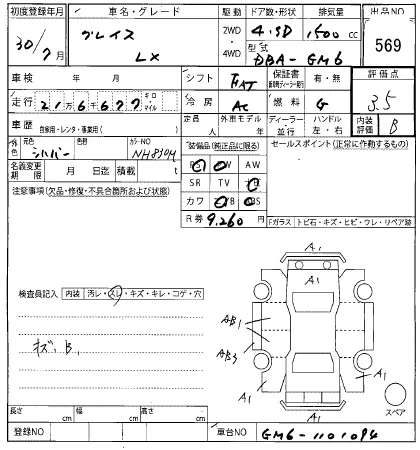 初度登録年月
車名・グレード
駆動
ドア数・形状
排気量
出品NO
30/7月
グレイス
LX
2WD
4WD
4.SD
1500 cc
型式
DBA-GM6
569
車検 年 月
シフト
FAT
保証書
有・無
評価点
3.5
走行
216677
キロ・マイル
冷房
AC
燃料
G
車歴
自家用・レンタ・事業用( )
定員
人
外車モデル
年
ディーラー・並行
ハンドル
左・右
内装評価
B
元色
シルバー
色
カラーNO
NH830M
装備品(純正品に限る)
セールスポイント(正常に作動するもの)
名義変更期限
月 日迄
積載
t
PS PW AW
SR TV
カワ
AB ABS
R券
9.260
円
注意事項(欠品・修復・不具合箇所および状態)
Fガラス
トビ石・キズ・ヒビ・ウレ・リペア跡
A1
A1
検査員記入
内装
汚レ・スレ・キズ・キレ・コゲ・穴
AB1
AB3
キズ.B.
A1
A1
A1
スペア
長さ cm
幅 cm
高さ cm
登録NO
車台NO
GM6-1101094